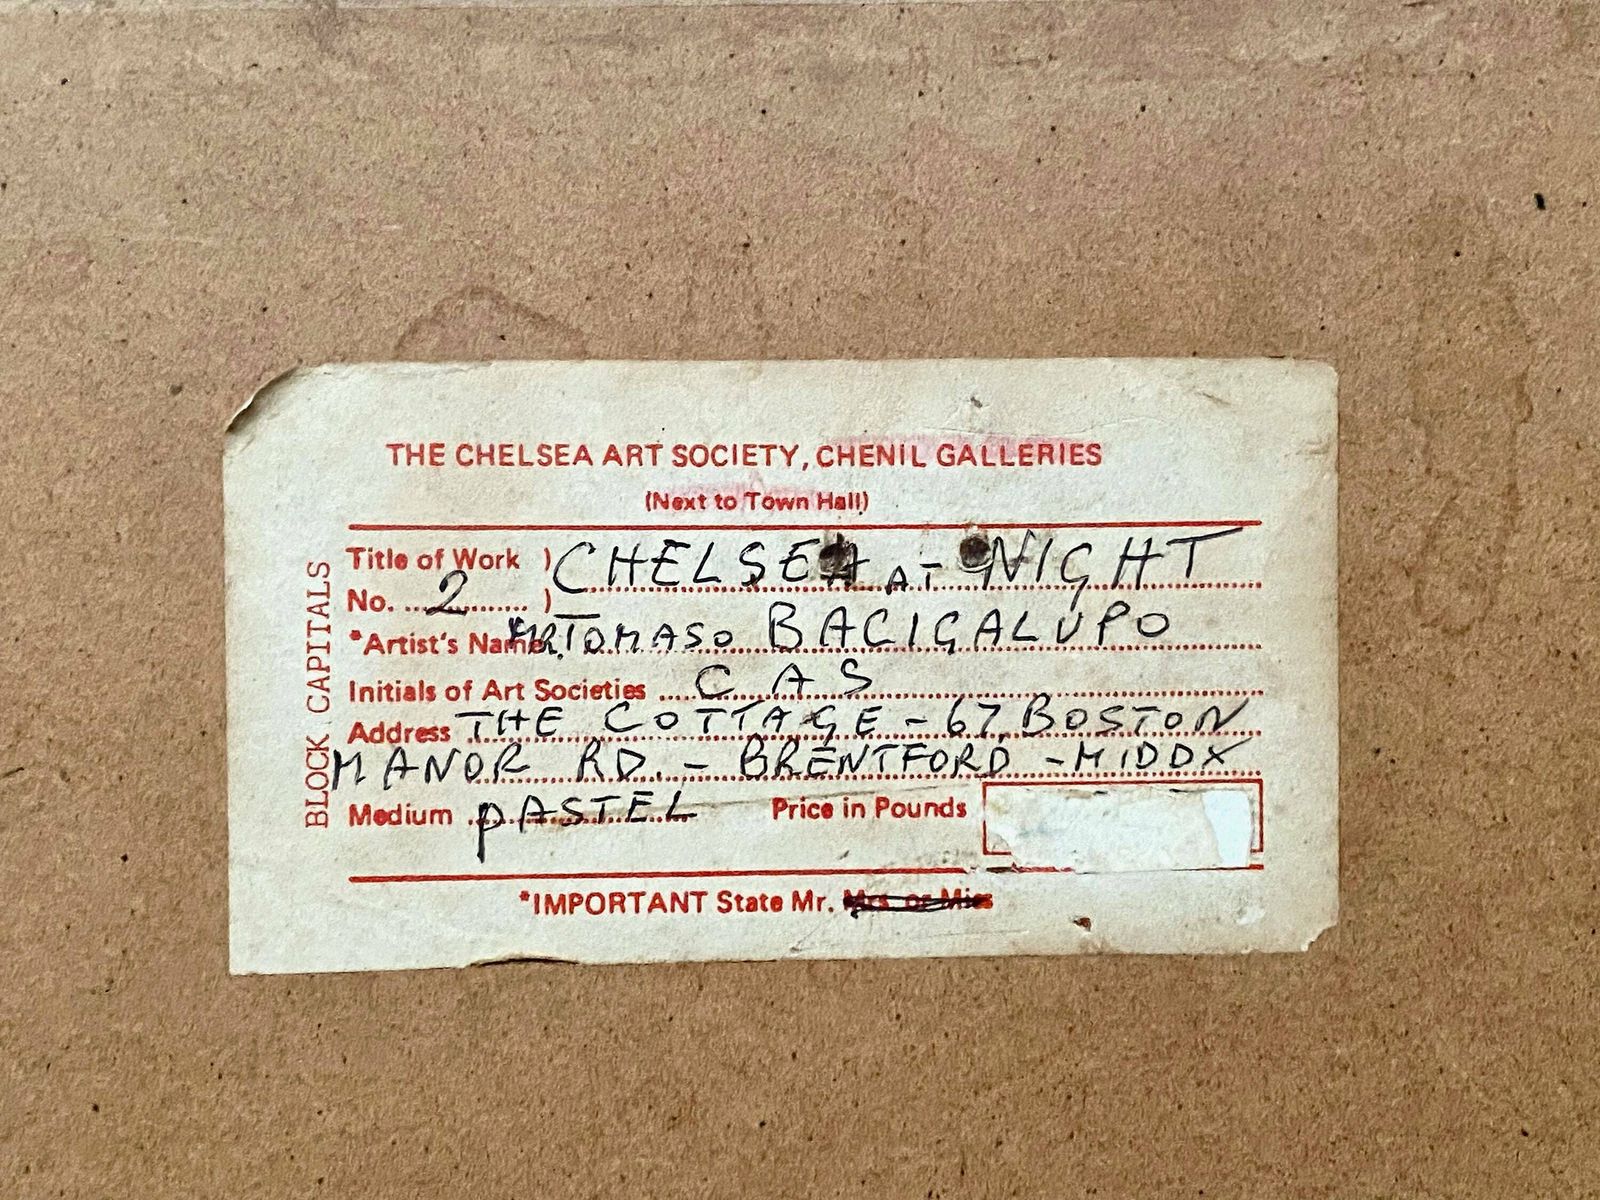 THE CHELSEA ART SOCIETY, CHENIL GALLERIES
(Next to Town Hall)
BLOCK CAPITALS
Title of Work ) CHELSEA AT NIGHT
No. 2 )
*Artist's Name MR. TOMASO BACIGALUPO
Initials of Art Societies C A S
Address THE COTTAGE - 67, BOSTON
MANOR RD. - BRENTFORD - MIDDX
Medium PASTEL Price in Pounds
*IMPORTANT State Mr. Mrs. or Miss